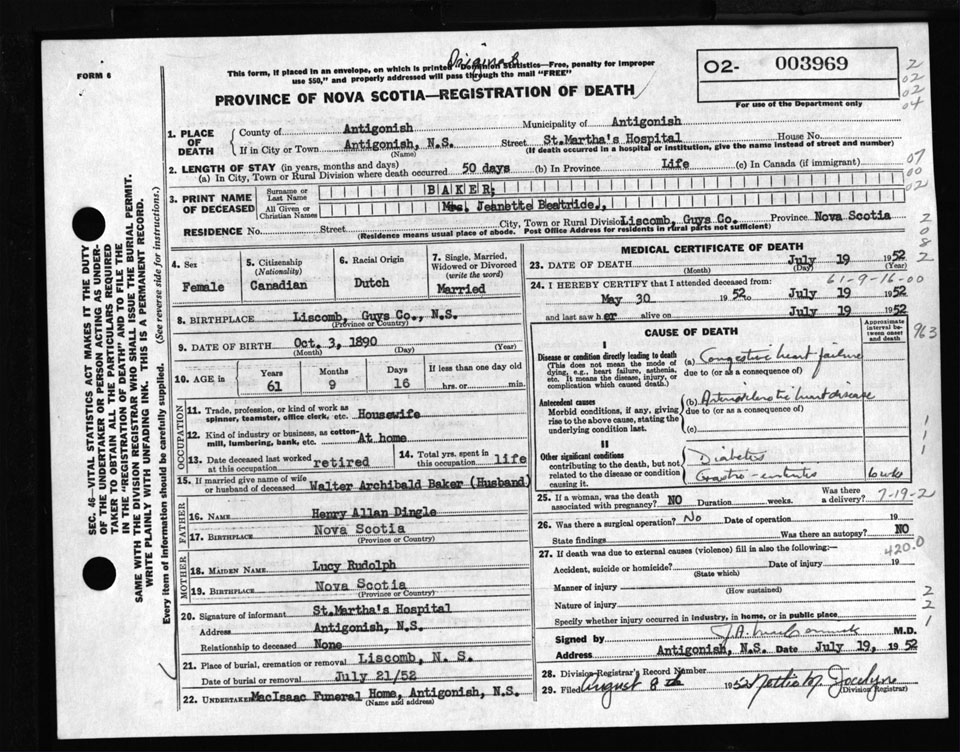 Original
FORM 6
This form, if placed in an envelope, on which is printed "Dominion Statistics—Free, penalty for improper
use $50," and properly addressed will pass through the mail "FREE"
PROVINCE OF NOVA SCOTIA—REGISTRATION OF DEATH
02- 003969
For use of the Department only
2
02
02
04
1. PLACE OF DEATH
County of Antigonish Municipality of Antigonish
If in City or Town Antigonish, N.S. Street St.Martha's Hospital House No.
(Name) (If death occurred in a hospital or institution, give the name instead of street and number)
2. LENGTH OF STAY (in years, months and days)
(a) In City, Town or Rural Division where death occurred 50 days (b) In Province Life (c) In Canada (if immigrant)
07
00
02
3. PRINT NAME OF DECEASED
Surname or Last Name BAKER,
All Given or Christian Names Mrs. Jeanette Beatrice.,
RESIDENCE No. Street City, Town or Rural Division Liscomb, Guys Co. Province Nova Scotia
(Residence means usual place of abode. Post Office Address for residents in rural parts not sufficient)
2
0
8
2
4. Sex
Female
5. Citizenship (Nationality)
Canadian
6. Racial Origin
Dutch
7. Single, Married, Widowed or Divorced (write the word)
Married
8. BIRTHPLACE Liscomb, Guys Co., N.S.
(Province or Country)
9. DATE OF BIRTH Oct. 3, 1890
(Month) (Day) (Year)
10. AGE in Years Months Days If less than one day old
61 9 16 hrs. or min.
OCCUPATION
11. Trade, profession, or kind of work as
spinner, teamster, office clerk, etc. Housewife
12. Kind of industry or business, as cotton-
mill, lumbering, bank, etc. At home
13. Date deceased last worked at this occupation retired
14. Total yrs. spent in this occupation life
15. If married give name of wife
or husband of deceased Walter Archibald Baker (Husband)
FATHER
16. NAME Henry Allan Dingle
17. BIRTHPLACE Nova Scotia
(Province or Country)
MOTHER
18. MAIDEN NAME Lucy Rudolph
19. BIRTHPLACE Nova Scotia
(Province or Country)
20. Signature of informant St.Martha's Hospital
Address Antigonish, N.S.
Relationship to deceased None
21. Place of burial, cremation or removal Liscomb, N. S.
Date of burial or removal July 21/52
22. UNDERTAKER MacIsaac Funeral Home, Antigonish, N.S.
(Name and address)
MEDICAL CERTIFICATE OF DEATH
23. DATE OF DEATH July 19 1952
(Month) (Day) (Year)
61-9-16-00
24. I HEREBY CERTIFY that I attended deceased from:
May 30 1952 to July 19 1952
and last saw her alive on July 19 1952
CAUSE OF DEATH
Approximate interval between onset and death
963
I
Disease or condition directly leading to death (a) Congestive heart failure
(This does not mean the mode of dying, e.g., heart failure, asthenia, etc. It means the disease, injury, or complication which caused death.)
due to (or as a consequence of)
Antecedent causes (b) Arteriosclerotic heart disease
Morbid conditions, if any, giving rise to the above cause, stating the underlying condition last.
due to (or as a consequence of)
(c)
II
Other significant conditions Diabetes
contributing to the death, but not related to the disease or condition causing it.
Gastro-enteritis 6 wks
1
1
25. If a woman, was the death associated with pregnancy? NO Duration weeks. Was there a delivery?
7-19-2
26. Was there a surgical operation? No Date of operation 19
State findings Was there an autopsy? NO
27. If death was due to external causes (violence) fill in also the following:—
420.0
Accident, suicide or homicide? Date of injury 19
(State which)
Manner of injury
(How sustained)
Nature of injury
Specify whether injury occurred in industry, in home, or in public place
2
2
1
Signed by M.D.
Address Antigonish, N.S. Date July 19, 1952
28. Division Registrar's Record Number
29. Filed August 8th 1952 Jocelyne
(Division Registrar)
SEC. 46—VITAL STATISTICS ACT MAKES IT THE DUTY
OF THE UNDERTAKER OR PERSON ACTING AS UNDER-
TAKER TO OBTAIN ALL THE PARTICULARS REQUIRED
IN THE "REGISTRATION OF DEATH" AND TO FILE THE
SAME WITH THE DIVISION REGISTRAR WHO SHALL ISSUE THE BURIAL PERMIT.
WRITE PLAINLY WITH UNFADING INK. THIS IS A PERMANENT RECORD.
Every item of information should be carefully supplied. (See reverse side for instructions.)